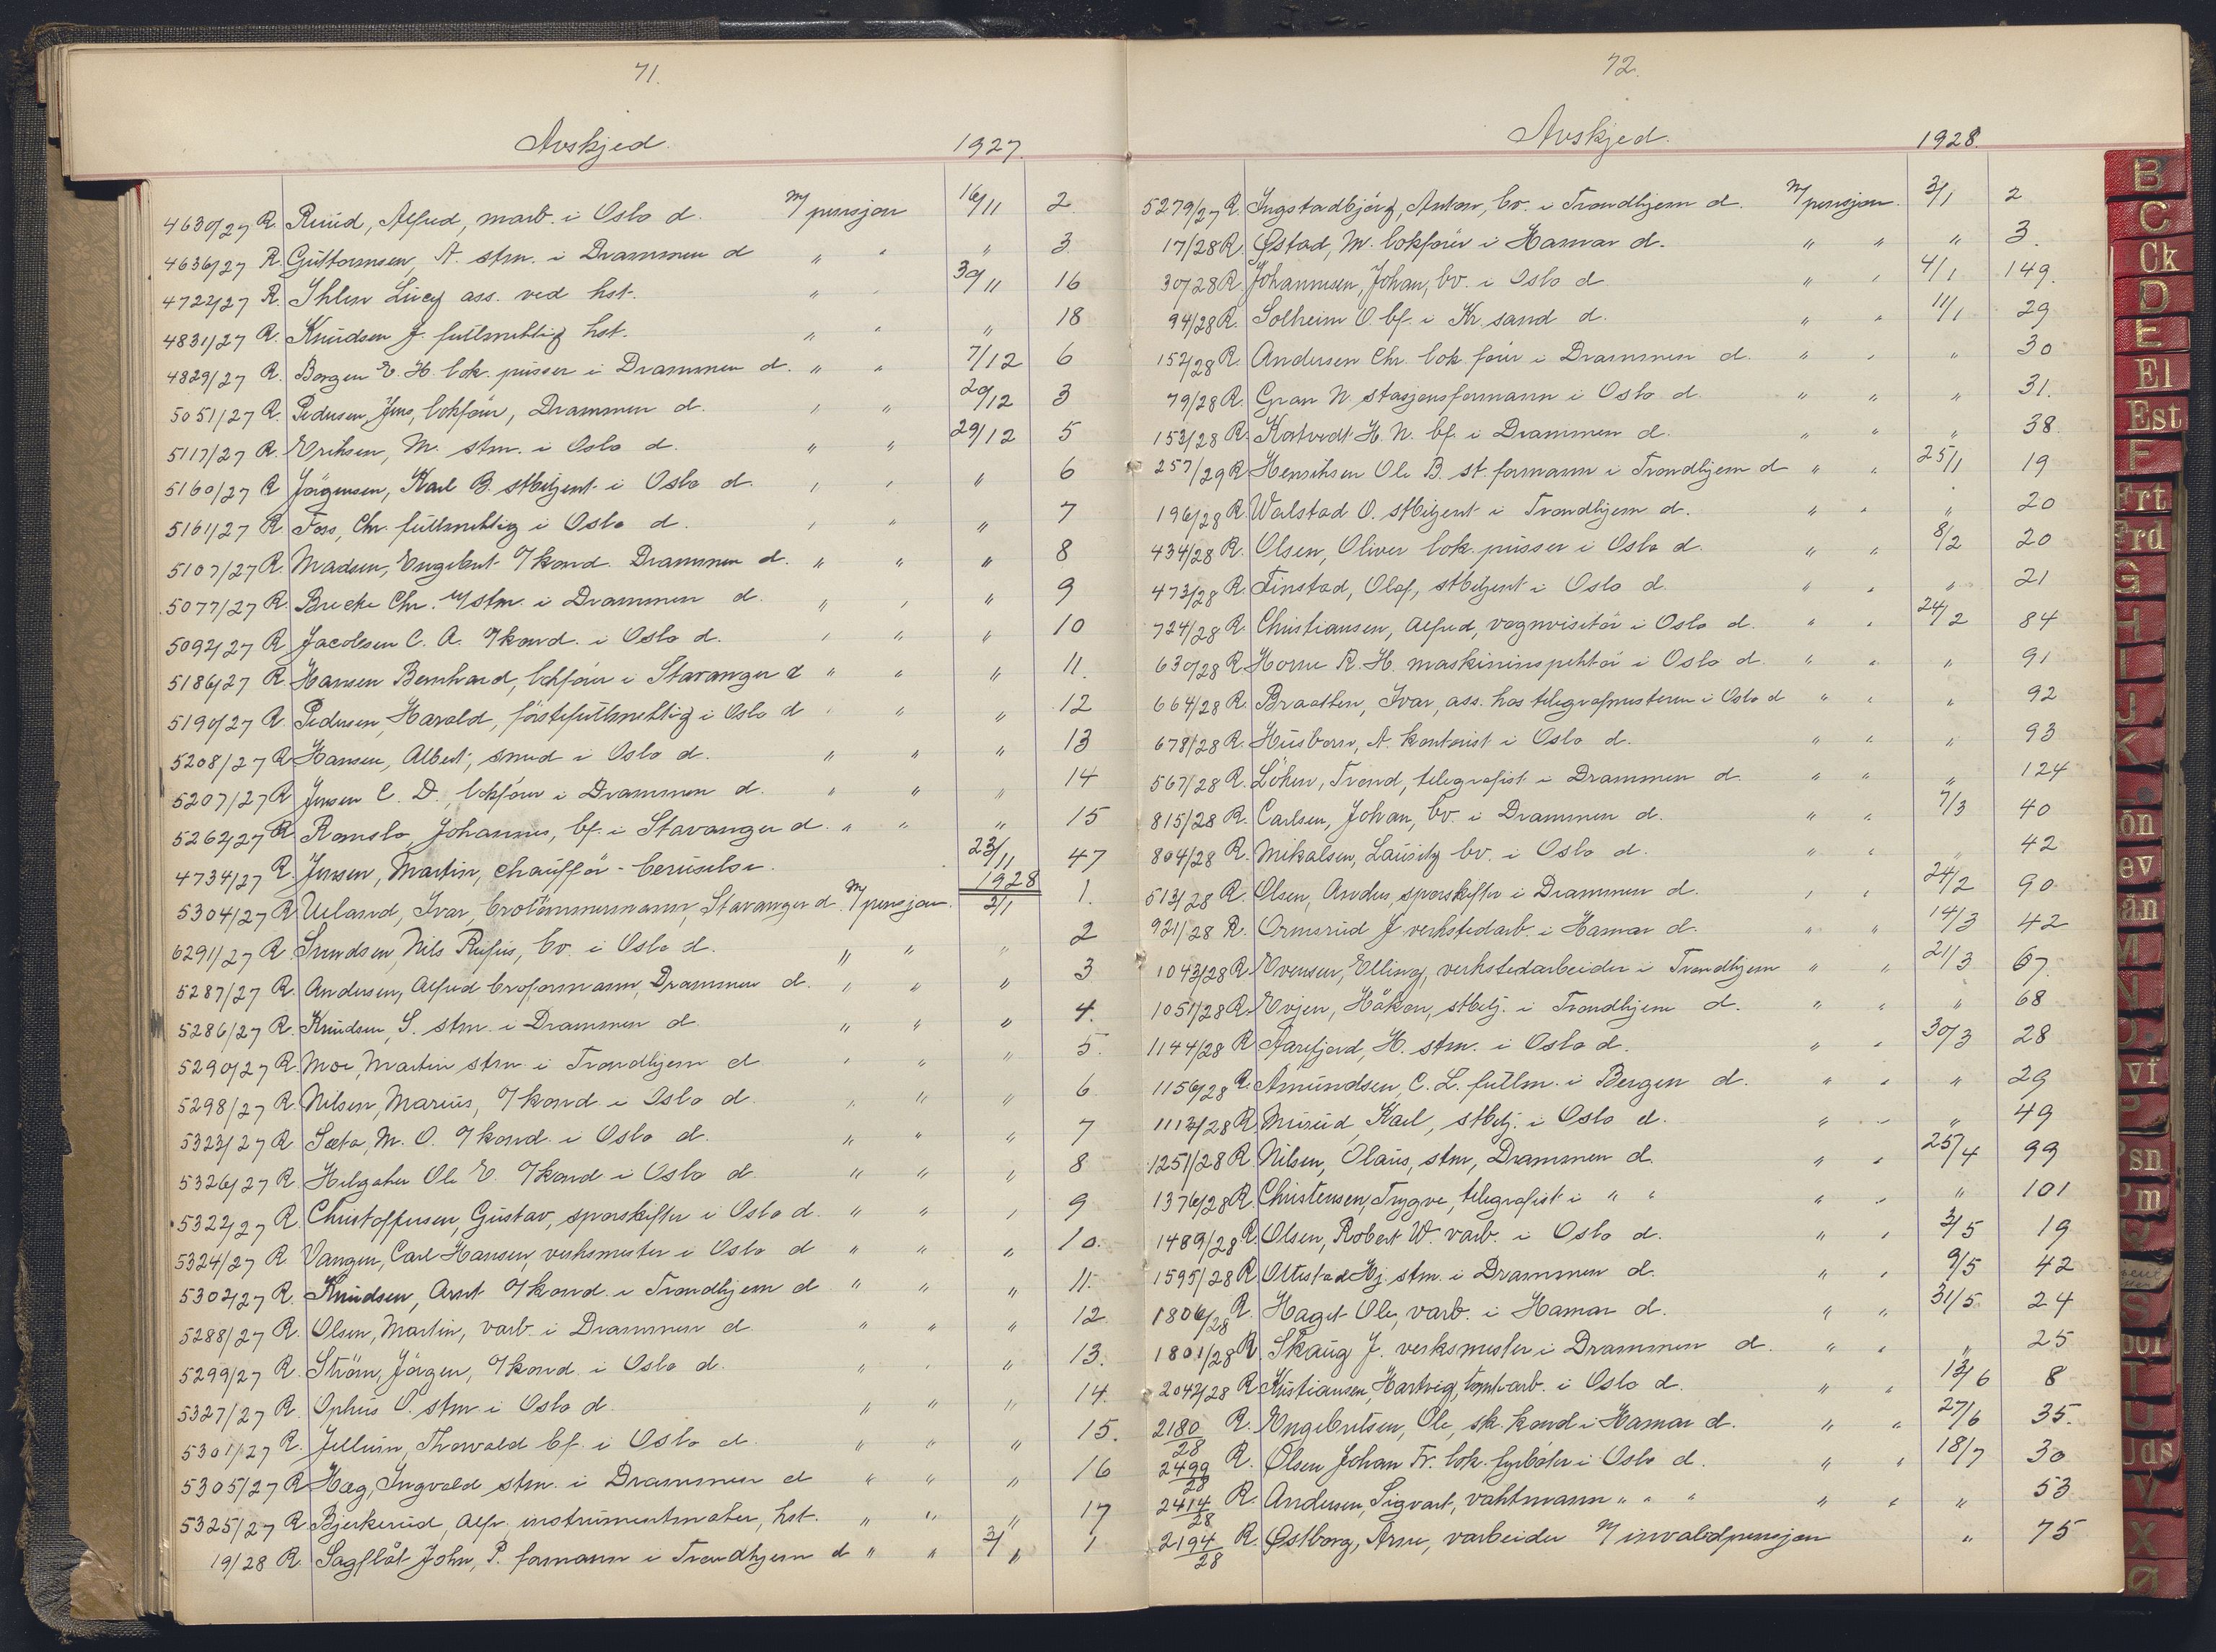 71.
Avskjed. 1927.
4630/27 R. Ruud, Alfred, marb. i Oslo d. m/ pensjon 16/11 2
4636/27 R. Guttormsen, A. stm. i Drammen d " " " 3
4722/27 R. Ihlen Lucy ass. ved hst. " " 30/11 16
4831/27 R. Knudsen J. fullmektig hst. " " " 18
4829/27 R. Borgen E. H. lok. pusser i Drammen d. " " 7/12 6
5051/27 R. Pedersen, Jens, lokförer, Drammen d. " " 20/12 3
5117/27 R. Eriksen, M. stm. i Oslo d. " " 29/12 5
5160/27 R Jörgensen, Karl B. stbetjent i Oslo d. " " " 6
5161/27 R. Foss, Chr. fullmektig i Oslo d. " " " 7
5107/27 R. Madsen, Engebret o/kond. Drammen d. " " " 8
5077/27 R. Brecke Chr. u/stm. i Drammen d. " " " 9
5092/27 R Jacobsen C. A. o/kond. i Oslo d. " " " 10
5186/27 R Hansen Bernhard, lokförer i Stavanger d " " " 11.
5190/27 R. Pedersen, Harald, förstefullmektig i Oslo d " " " 12
5208/27 R Hansen, Albert, smed i Oslo d. " " " 13
5207/27 R Jensen C. D. lokförer i Drammen d. " " " 14
5262/27 R Romslo Johannes, bf. i Stavanger d. " " " 15
4734/27 R. Jensen, Martin, chauffør - beruselse. 23/11 47
1928
5304/27 R Ueland, Ivar, brotömmermann, Stavanger d. m/ pensjon. 2/1 1.
6291/27 R. Svendsen, Nils Rufus, bv. i Oslo d. " " " 2
5287/27 R. Andersen, Alfred broformann, Drammen d. " " " 3
5286/27 R. Knudsen, S. stm. i Drammen d " " " 4.
5290/27 R. Moe, Martin stm i Trondhjem d " " " 5.
5298/27 R. Nilsen, Marius, o/kond i Oslo d. " " " 6
5323/27 R Sæta, M. O. o/kond. i Oslo d. " " " 7
5326/27 R. Helgaker Ole E. o/kond i Oslo d. " " " 8
5322/27 R. Christoffersen, Gustav, sporskifter i Oslo d. " " " 9
5324/27 R Vangen, Carl Hansen, verksmester i Oslo d " " " 10.
5302/27 R. Knudsen, Arnt o/kond. i Trondhjem d " " " 11.
5288/27 R. Olsen, Martin, varb. i Drammen d " " " 12.
5299/27 R. Ström, Jörgen, o/kond. i Oslo d. " " " 13.
5327/27 R. Ophus O. stm i Oslo d. " " " 14.
5301/27 R. Jellum, Thorvald bf. i Oslo d. " " " 15.
5305/27 R Hæg, Ingvald stm. i Drammen d " " " 16
5325/27 R Bjerkerud, Alfr. instrumentmaker, hst. " " " 17
19/28 R. Sagflåt John, P. formann i Trondhjem d " " 3/" 1
72.
Avskjed. 1928.
5279/27 R. Ingstadbjörg, Anton, bv. i Trondhjem d. m/ pensjon. 3/1 2
17/28 R. Østad, M. lokförer i Hamar d. " " " 3.
30/28 R Johannesen, Johan, bv. i Oslo d " " 4/1 149.
94/28 R. Solheim O. bf. i Kr.sand d. " " 11/1 29
152/28 R. Andersen Chr. lok.förer i Drammen d. " " " 30
79/28 R. Gran N. stasjonsformann i Oslo d. " " " 31.
153/28 R. Kortvedt H. N. bf. i Drammen d. " " " 38
257/29 R Henriksen Ole B. st. formann i Trondhjem d " " 25/1 19
196/28 R Walstad O. stbetjent i Trondhjem d. " " " 20
434/28 R. Olsen, Oliver lok. pusser i Oslo d. " " 8/2 20
473/28 R. Finstad, Olaf, stbetjent i Oslo d. " " " 21
724/28 R. Christiansen, Alfred, vognvisitör i Oslo d. " " 24/2 84
630/28 R Horne R. H. maskininspektör i Oslo d. " " " 91
664/28 R. Braathen, Ivar, ass. hos telegrafmesteren i Oslo d " " " 92
678/28 R. Husborn, A. kontorist i Oslo d. " " " 93
567/28 R. Löken, Trond, telegrafist i Drammen d. " " " 124
815/28 R. Carlsen, Johan, bv. i Drammen d. " " 7/3 40
804/28 R. Mikalsen, Lauritz bv. i Oslo d. " " " 42
513/28 R. Olsen, Anders, sporskifter i Drammen d. " " 24/2 90
921/28 R. Ormsrud J verkstedarb. i Hamar d. " " 14/3 42
1043/28 R Evensen, Elling, verkstedarbeider i Trondhjem " " 21/3 67.
1051/28 R. Evjen, Håkon, stbetj. i Trondhjem d. " " " 68
1144/28 R Aarefjord, H. stm. i Oslo d. " " 30/3 28
1156/28 R. Amundsen, C. L. fullm. i Bergen d. " " " 29
1113/28 R Murud, Karl, stbetj. i Oslo d. " " " 49
1251/28 R Nilsen, Olaus, stm, Drammen d. " " 25/4 99
1376/28 R Christensen, Trygve, telegrafist i " " " " " 101
1489/28 R. Olsen, Robert W. varb. i Oslo d. " " 3/5 19
1595/28 R Ottestad Hj. stm. i Drammen d. " " 9/5 42
1806/28 R. Haget Ole, varb. i Hamar d. " " 31/5 24
1801/28 R Skaug J. verksmester i Drammen d. " " " 25
2042/28 R Kristiansen, Hartvig, tomtarb. i Oslo d. " " 13/6 8
2180/28 R. Engebretsen, Ole, sk. kond i Hamar d. " " 27/6 35.
2499/28 R. Olsen Johan Fr. lok. fyrböter i Oslo d. " " 18/7 30
2414/28 R. Andersen, Sigvart, vaktmann " " " " " " 53
2194/28 R. Østborg, Arne, varbeider m/ invalidpensjon " 75
B
C
Ck
D
E
El
Est
F
Frt
G
H
I
J
K
ön
ev
M
N
O
P
S
T
U
V
X
Ø